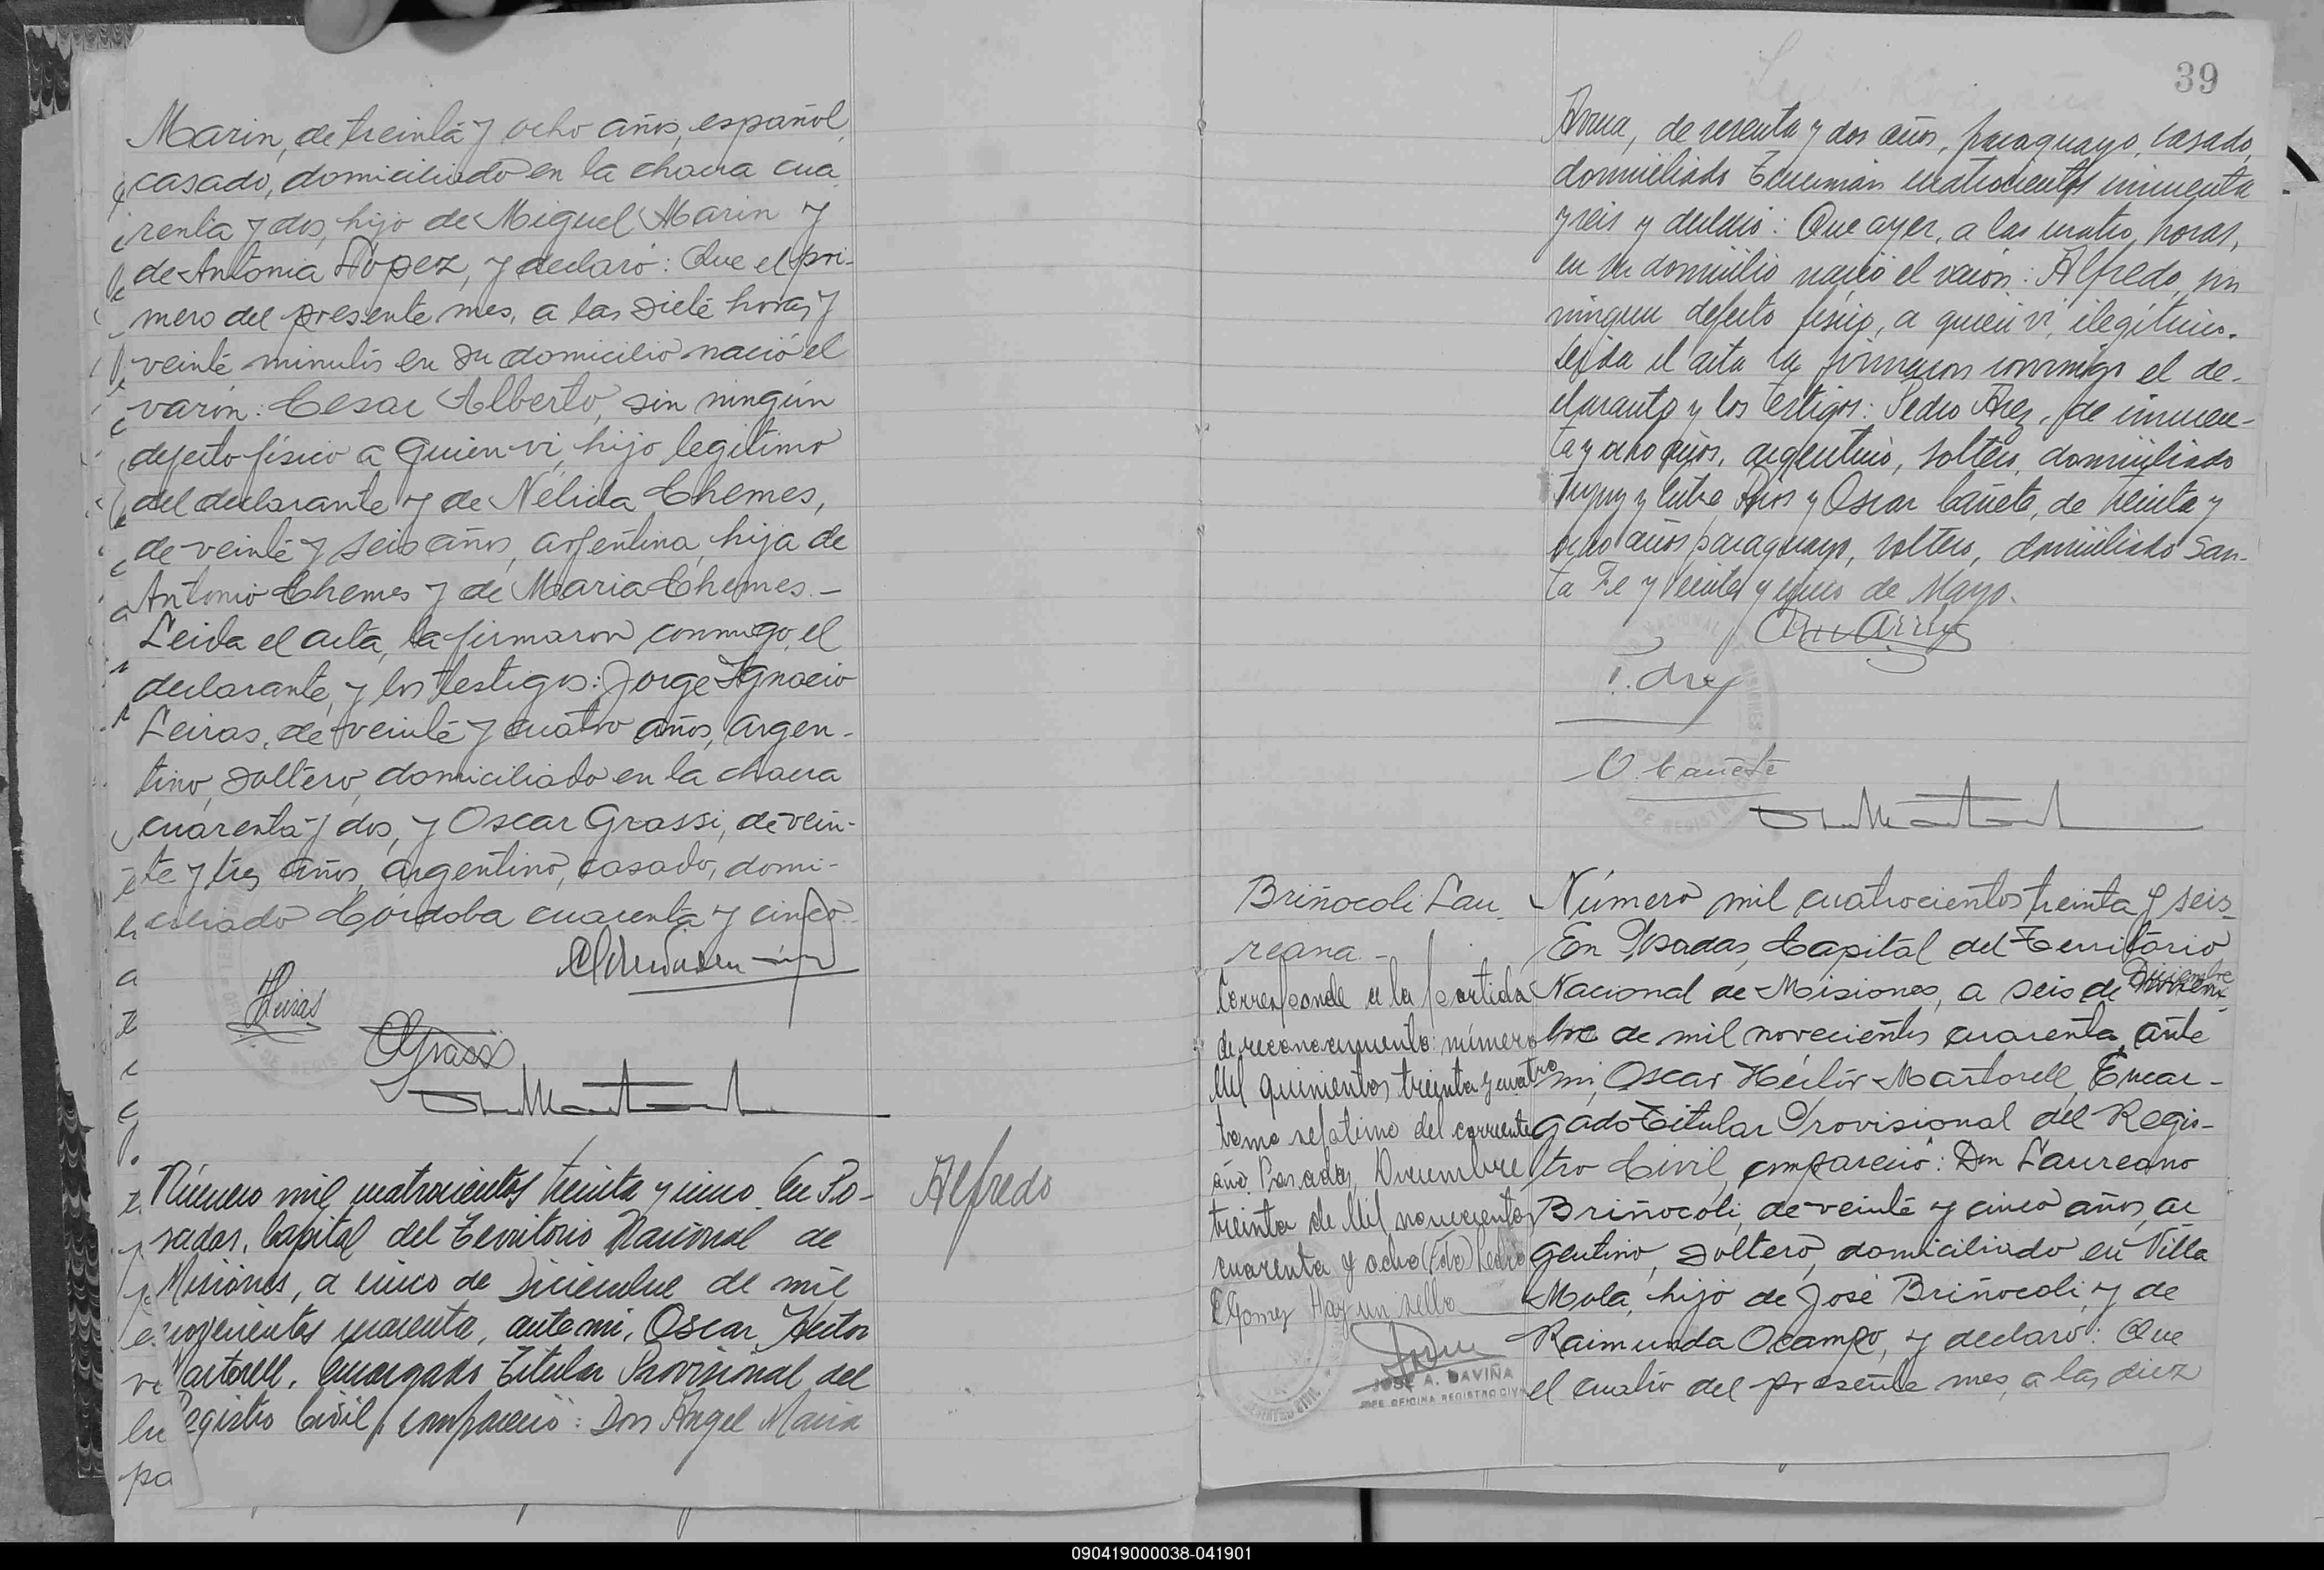 Marin, de treinta y ocho años, español,
casado, domiciliado en la chacra cua
renta y dos, hijo de Miguel Marin y
de Antonia López, y declaró: Que el pri-
mero del presente mes, a las siete horas y
veinte minutos en su domicilio nació el
varón: Cesar Alberto, sin ningún
defecto físico a quien vi, hijo legítimo
del declarante y de Nélida Chemes,
de veinte y seis años, argentina, hija de
Antonio Chemes y de Maria Chemes.—
Leida el acta, la firmaron conmigo, el
declarante, y los testigos: Jorge Ignacio
Leiras, de veinte y cuatro años, argen-
tino, soltero, domiciliado en la chacra
cuarenta y dos, y Oscar Grassi, de vein-
te y tres años, argentino, casado, domi-
ciliado Córdoba cuarenta y cinco.
Leiras
OGrassi
Número mil cuatrocientos treinta y cinco. En Po-
sadas, Capital del Territorio Nacional de
Misiones, a cinco de Diciembre de mil
novecientos cuarenta, ante mi, Oscar Hector
Martorell, Encargado Titular Provisional del
Registro Civil, compareció: Don Angel Maria
Alfredo
39
de sesenta y dos años, paraguayo, casado,
domiciliado Tucumán cuatrocientos cincuenta
y seis y declaró: Que ayer, a las cuatro horas,
en su domicilio nació el varón: Alfredo, sin
ningun defecto físico, a quien vi, ilegítimo.
Leida el acta la firmaron conmigo el de-
clarante y los testigos: Pedro Arez, de cincuen-
ta y ocho años, argentino, soltero, domiciliado
Jujuy y Entre Rios y Oscar Cañete, de treinta y
ocho años paraguayo, soltero, domiciliado San-
ta Fe y Veinte y cinco de Mayo.
O. Cañete
Briñocoli Lau-
reana.-
Corresponde a la partida
de reconocimiento: número
Mil quinientos treinta y cuatro
tomo septimo del corriente
año. Posadas, Diciembre
treinta de Mil novecientos
cuarenta y ocho (Fdo) Pedro
E Gomez Hay un sello
JOSE A. DAVIÑA
JEFE OFICINA REGISTRO CIVIL
Número mil cuatrocientos treinta y seis
En Posadas, Capital del Territorio
Nacional de Misiones, a seis de Diciembre
bre de mil novecientos cuarenta, ante
mi, Oscar Héctor Martorell, Encar-
gado Titular Provisional del Regis-
tro Civil, compareció: Don Laureano
Briñocoli, de veinte y cinco años, ar
gentino, soltero, domiciliado en Villa
Mola, hijo de José Briñocoli, y de
Raimunda Ocampo, y declaró: Que
el cuatro del presente mes, a las diez
090419000038-041901